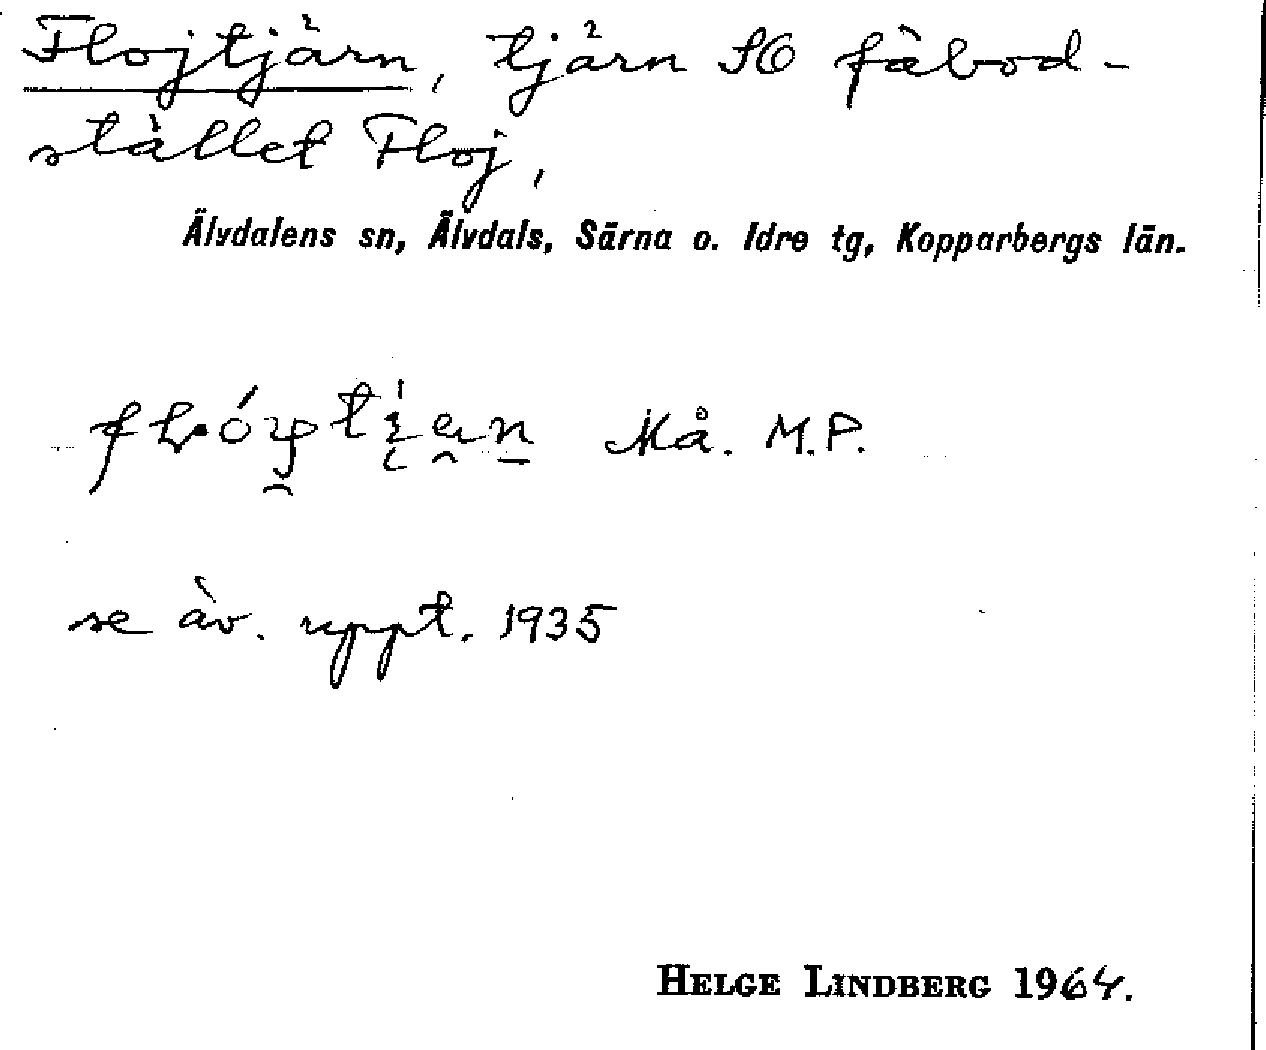 Flojtjärn, tjärn SO fäbod-
stället Floj,
Älvdalens sn, Älvdals, Särna o. Idre tg, Kopparbergs län.
Må. M.P.
se äv. uppt. 1935
HELGE LINDBERG 1964.